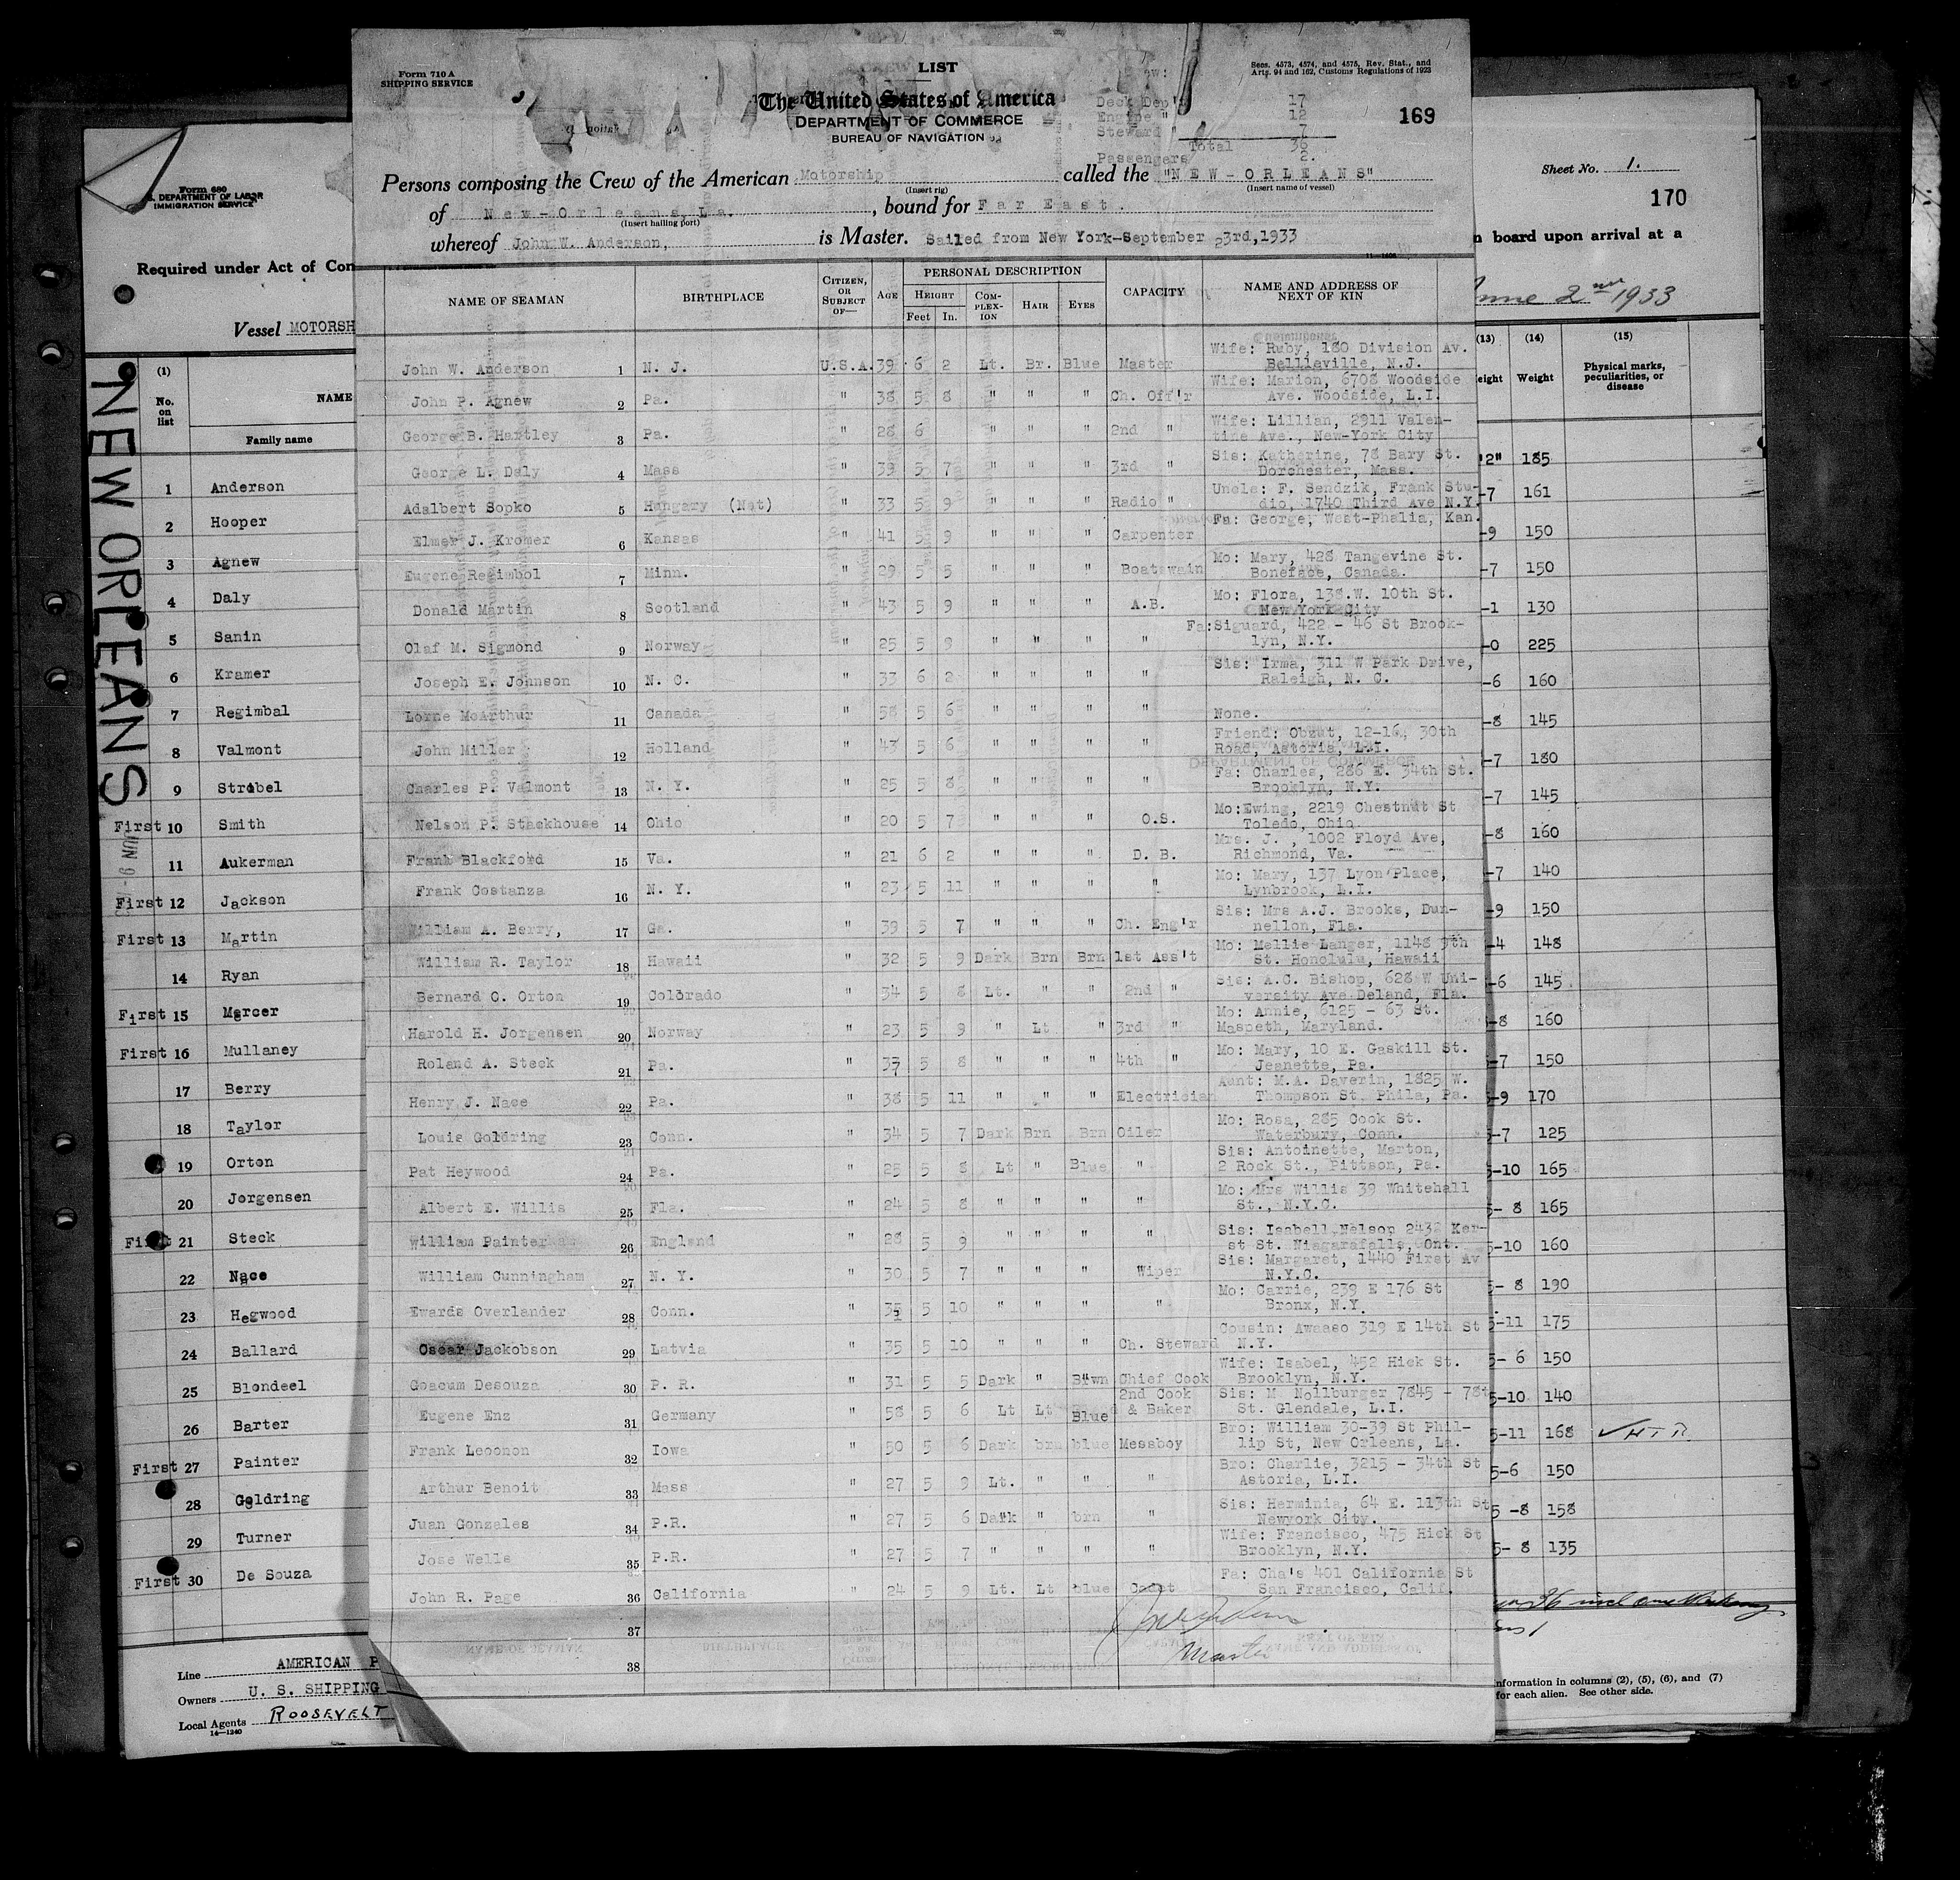 Form 710 A
SHIPPING SERVICE
LIST
The United States of America
DEPARTMENT OF COMMERCE
BUREAU OF NAVIGATION
Secs. 4573, 4574, and 4575, Rev. Stat., and
Arts. 94 and 162, Customs Regulations of 1923
169
Deck Dep't 17
Engine " 12
Steward " 7
Total 36
Passengers 2.
Persons composing the Crew of the American Motorship called the "NEW-ORLEANS"
(Insert rig) (Insert name of vessel)
of New-Orleans, La. , bound for Far East.
(Insert hailing port)
whereof John W. Anderson, is Master. Sailed from New York-September 23rd, 1933
NAME OF SEAMAN BIRTHPLACE CITIZEN, OR SUBJECT OF— AGE PERSONAL DESCRIPTION CAPACITY NAME AND ADDRESS OF NEXT OF KIN
HEIGHT COMPLEXION HAIR EYES
Feet In.
John W. Anderson 1 N. J. U.S.A. 39 6 2 Lt. Br. Blue Master Wife: Ruby, 180 Division Av.
Bellieville, N.J.
John P. Agnew 2 Pa. " 38 5 8 " " " Ch. Off'r Wife: Marion, 6708 Woodside
Ave. Woodside, L.I.
George B. Hartley 3 Pa. " 28 6 " " " 2nd " Wife: Lillian, 2911 Valen-
tine Ave., New-York City
George L. Daly 4 Mass " 39 5 7 " " " 3rd " Sis: Katherine, 78 Bary St.
Dorchester, Mass.
Adalbert Sopko 5 Hungary (Nat) " 33 5 9 " " " Radio " Uncle: F. Sendzik, Frank Stu-
dio, 1740 Third Ave N.Y.
Elmer J. Kromer 6 Kansas " 41 5 9 " " " Carpenter Fa: George, West-Phalia, Kan.
Eugene Regimbol 7 Minn. " 29 5 5 " " " Boatswain Mo: Mary, 428 Tangevine St.
Boneface, Canada.
Donald Martin 8 Scotland " 43 5 9 " " " A.B. Mo: Flora, 138.W. 10th St.
New York City
Olaf M. Sigmond 9 Norway " 25 5 9 " " " " Fa:Siguard, 422 - 46 St Brook-
lyn, N.Y.
Joseph E. Johnson 10 N. C. " 33 6 2 " " " " Sis: Irma, 311 W Park Drive,
Raleigh, N. C.
Lorne McArthur 11 Canada " 58 5 6 " " " " None.
John Miller 12 Holland " 43 5 6 " " " " Friend: Obzut, 12-16, 30th
Road, Astoria, L.I.
Charles P. Valmont 13 N. Y. " 25 5 8 " " " " Fa: Charles, 286 E. 34th St.
Brooklyn, N.Y.
Nelson P. Stackhouse 14 Ohio " 20 5 7 " " " O.S. Mo:Ewing, 2219 Chestnut St
Toledo, Ohio.
Frank Blackford 15 Va. " 21 6 2 " " " D. B. Mrs. J., 1002 Floyd Ave,
Richmond, Va.
Frank Costanza 16 N. Y. " 23 5 11 " " " " Mo: Mary, 137 Lyon Place,
Lynbrook, L.I.
William A. Berry, 17 Ga. " 39 5 7 " " " Ch. Eng'r Sis: Mrs A.J. Brooks, Dun-
nellon, Fla.
William R. Taylor 18 Hawaii " 32 5 9 Dark Brn Brn 1st Ass't Mo: Mellie Langer, 1148 9th
St. Honolulu, Hawaii
Bernard C. Orton 19 Colorado " 34 5 8 Lt. " " 2nd " Sis: A.C. Bishop, 628 W Uni-
versity Ave Deland, Fla.
Harold H. Jorgensen 20 Norway " 23 5 9 " Lt " 3rd " Mo: Annie, 6125 - 63 St.
Maspeth, Maryland.
Roland A. Steck 21 Pa. " 37 5 8 " " " 4th " Mo: Mary, 10 E. Gaskill St.
Jeanette, Pa.
Henry J. Nace 22 Pa. " 38 5 11 " " " Electrician Aunt: M.A. Daverin, 1825 W.
Thompson St. Phila, Pa.
Louis Goldring 23 Conn. " 34 5 7 Dark Brn Brn Oiler Mo: Rosa, 285 Cook St.
Waterbury, Conn.
Pat Heywood 24 Pa. " 25 5 8 Lt " Blue " Sis: Antoinette, Marton,
2 Rock St., Pittson, Pa.
Albert E. Willis 25 Fla. " 24 5 8 " " " " Mo: Mrs Willis 39 Whitehall
St., N.Y.C.
William Painter 26 England " 28 5 9 " " " " Sis: Isabell Nelson 2432 Ker-
st St. Niagarafalls, Ont.
William Cunningham 27 N. Y. " 30 5 7 " " " Wiper Sis: Margaret, 1440 First Av
N.Y.C.
Ewards Overlander 28 Conn. " 35 5 10 " " " " Mo: Carrie, 239 E 176 St
Bronx, N.Y.
Oscar Jackobson 29 Latvia " 35 5 10 " " " Ch. Steward Cousin: Awaaso 319 E 14th St
N.Y.
Goacum Desouza 30 P. R. " 31 5 5 Dark " Brwn Chief Cook Wife: Isabel, 452 Hick St.
Brooklyn, N.Y.
Eugene Enz 31 Germany " 58 5 6 Lt Lt Blue 2nd Cook & Baker Sis: M Nollburger 7845 - 78t
St. Glendale, L.I.
Frank Lecomon 32 Iowa " 50 5 6 Dark brn blue Messboy Bro: William 30-39 St Phil-
lip St, New Orleans, La.
Arthur Benoit 33 Mass " 27 5 9 Lt. " " " Bro: Charlie, 3215 - 34th St
Astoria, L.I.
Juan Gonzales 34 P.R. " 27 5 6 Dark " brn " Sis: Herminia, 64 E. 113th St
Newyork City.
Jose Wells 35 P.R. " 27 5 7 " " " " Wife: Francisco, 475 Hick St
Brooklyn, N.Y.
John R. Page 36 California " 24 5 9 Lt. Lt blue Cadet Fa: Cha's 401 California St
San Francisco, Calif.
37
38
Master
Form 680
U. S. DEPARTMENT OF LABOR
IMMIGRATION SERVICE
Required under Act of Con
Vessel MOTORSH
NEW ORLEANS
(1)
No. on list
NAME
Family name
1 Anderson
2 Hooper
3 Agnew
4 Daly
5 Sanin
6 Kramer
7 Regimbal
8 Valmont
9 Strobel
First 10 Smith
11 Aukerman
First 12 Jackson
First 13 Martin
14 Ryan
First 15 Mercer
First 16 Mullaney
17 Berry
18 Taylor
19 Orton
20 Jorgensen
First 21 Steck
22 Nace
23 Hegwood
24 Ballard
25 Blondeel
26 Barter
First 27 Painter
28 Goldring
29 Turner
First 30 De Souza
JUN 9
Line AMERICAN P
Owners U. S. SHIPPING
Local Agents ROOSEVELT
14—1240
Sheet No. 1.
170
n board upon arrival at a
2nd 1933
(13) (14) (15)
eight Weight Physical marks, peculiarities, or disease
2" 185
-7 161
-9 150
-7 150
-1 130
-0 225
-6 160
-8 145
-7 180
-7 145
-8 160
-7 140
-9 150
-4 148
-6 145
-8 160
-7 150
5-9 170
5-7 125
5-10 165
5- 8 165
5-10 160
5- 8 190
5-11 175
5- 6 150
5-10 140
5-11 168
5-6 150
5 -8 158
5- 8 135
nformation in columns (2), (5), (6), and (7)
for each alien. See other side.